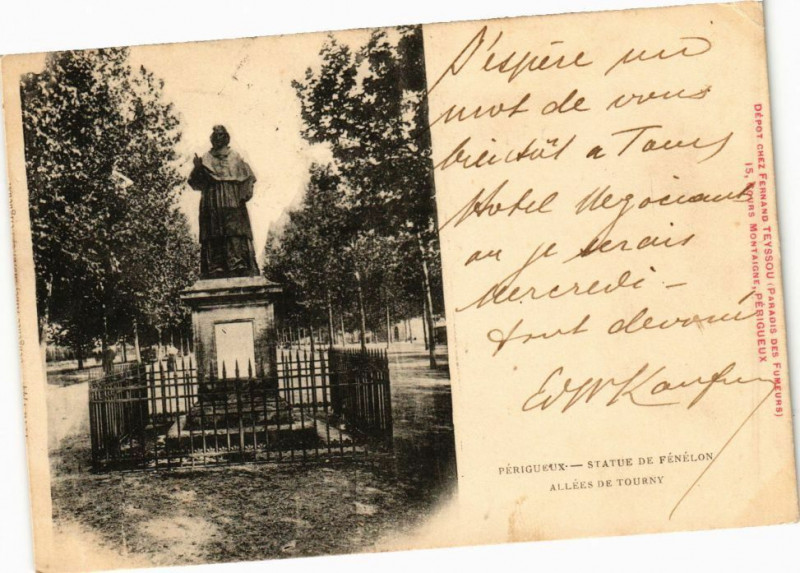 J'espère un
mot de vous
bientôt a Tours
Hotel Negociants
ou je serais
Mercredi -
tout devoué
PÉRIGUEUX. — STATUE DE FÉNÉLON
ALLÉES DE TOURNY
DÉPOT CHEZ FERNAND TEYSSOU (PARADIS DES FUMEURS)
15, COURS MONTAIGNE, PÉRIGUEUX